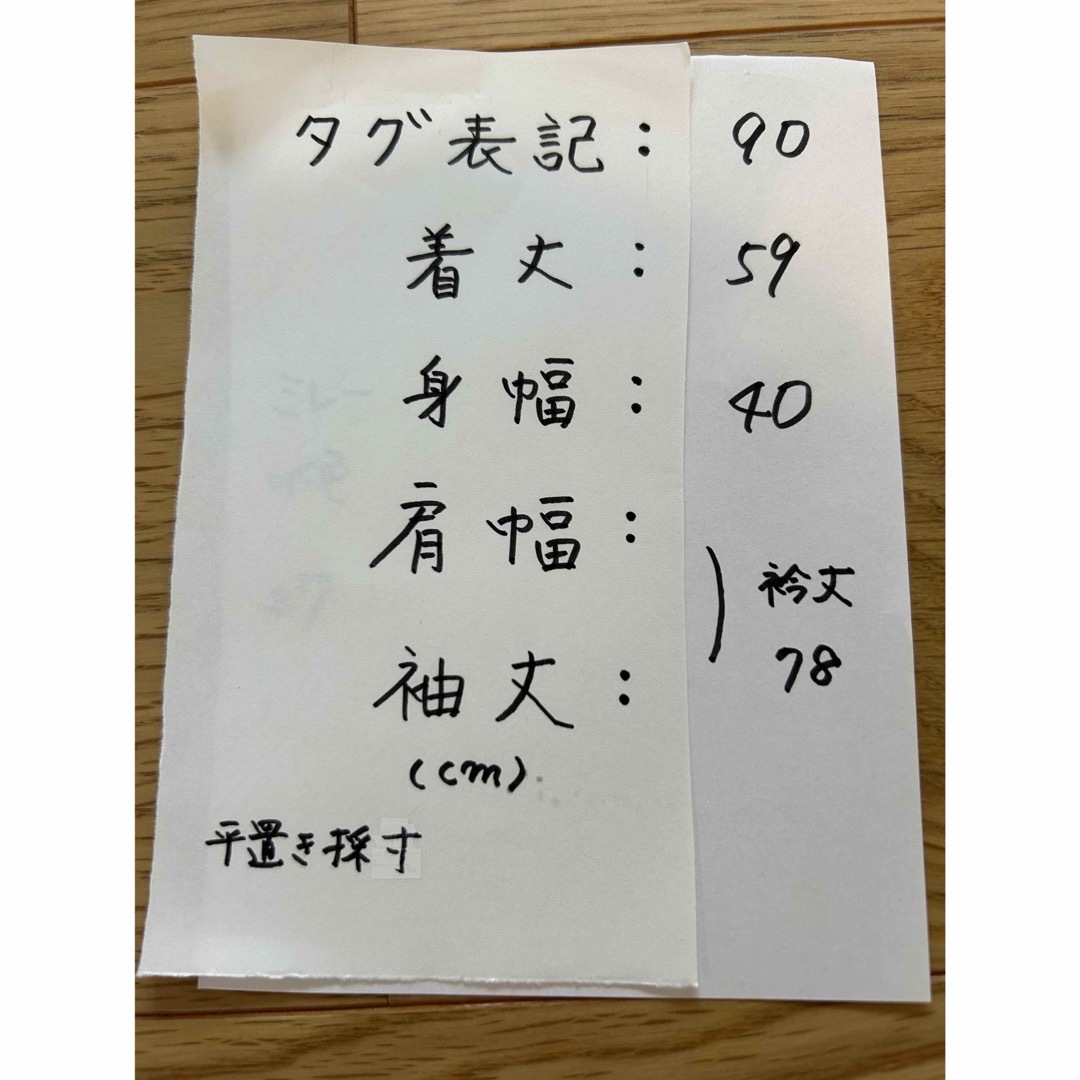 タグ表記: 90
着丈: 59
身幅: 40
肩幅:
衿丈
78
袖丈:
(cm)
平置き採寸